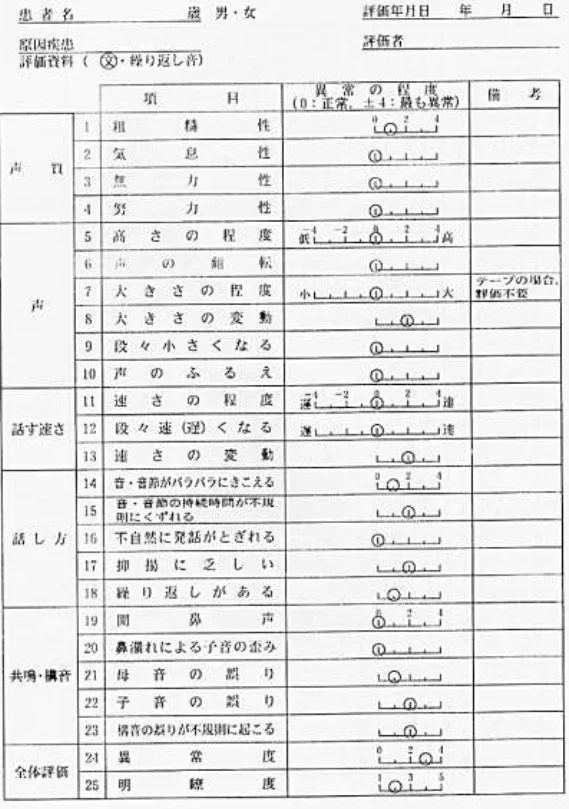 患者名 歳 男・女 評価年月日 年 月 日
原因疾患 評価者
評価資料 ( 文・繰り返し音)
項 目 異常の程度 (0:正常, ±4:最も異常) 備 考
声質
1 粗糙性 0 2 4
2 気息性
3 無力性
4 努力性
声
5 高さの程度 低 -4 -2 0 2 4 高
6 声の翻転
7 大きさの程度 小 大 テープの場合,評価不要
8 大きさの変動
9 段々小さくなる
10 声のふるえ
話す速さ
11 速さの程度 遅 -4 -2 0 2 4 速
12 段々速(遅)くなる 遅 速
13 速さの変動
話し方
14 音・音節がバラバラにきこえる 0 2 4
15 音・音節の持続時間が不規則にくずれる
16 不自然に発話がとぎれる
17 抑揚に乏しい
18 繰り返しがある
共鳴・構音
19 開鼻声 0 2 4
20 鼻漏れによる子音の歪み
21 母音の誤り
22 子音の誤り
23 構音の誤りが不規則に起こる
全体評価
24 異常度 0 2 4
25 明瞭度 1 3 5